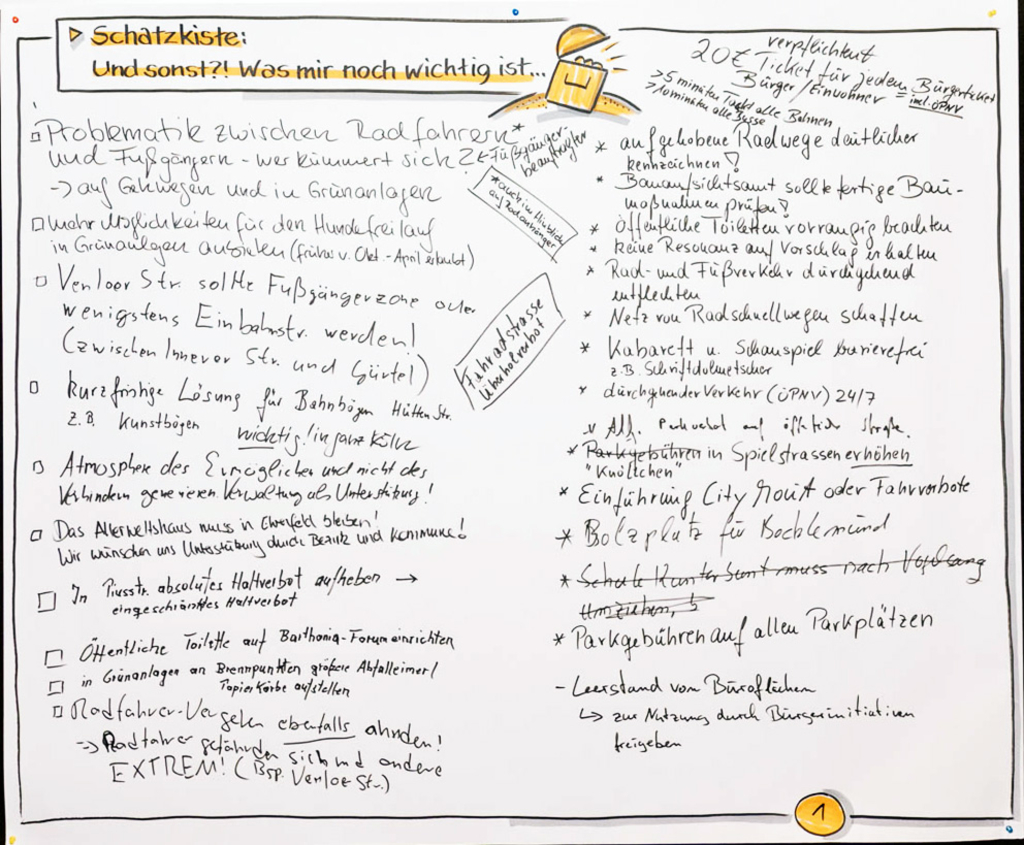 Schatzkiste:
Und sonst?! Was mir noch wichtig ist...
Problematik zwischen Radfahrern*
und Fußgängern - wer kümmert sich? ← Fußgänger-
beauftragter
-> auf Gehwegen und in Grünanlagen
*auch im Hinblick
auf Radanhänger
mehr Möglichkeiten für den Hundefreilauf
in Grünanlagen anbieten (früher v. Okt.-April erlaubt)
Venloer Str. sollte Fußgängerzone oder
wenigstens Einbahnstr. werden!
(zwischen Innerer Str. und Gürtel)
Fahrradstrasse
Überholverbot
kurzfristige Lösung für Bahnbögen Hütten Str.
z.B. Kunstbögen wichtig! in ganz Köln
Atmosphere des Ermöglichen und nicht des
Verhindern generieren. Verwaltung als Unterstützung!
Das Allerweltshaus muss in Ehrenfeld bleiben!
Wir wünschen uns Unterstützung durch Bezirk und Kommune!
In Piusstr. absolutes Haltverbot aufheben →
eingeschränktes Haltverbot
Öffentliche Toilette auf Barthonia-Forum einrichten
in Grünanlagen an Brennpunkten größere Abfalleimer/
Papierkörbe aufstellen
Radfahrer-Vergehen ebenfalls ahnden!
-> Radfahrer gefährden sich und andere
EXTREM! (Bsp. Venloer Str.)
verpflichtend
20€ Ticket für jeden Bürgerticket
Bürger/Einwohner = incl. ÖPNV
> 5 minuten Takt alle Bahnen
> 10 minuten alle Busse
* aufgehobene Radwege deutlicher
kennzeichnen!
* Bauaufsichtsamt sollte fertige Bau-
maßnahmen prüfen!
* Öffentliche Toiletten vorrangig beachten
* keine Resonanz auf Vorschlag erhalten
* Rad- und Fußverkehr durchgehend
entflechten
* Netz von Radschnellwegen schaffen
* Kabarett u. Schauspiel barrierefrei
z.B. Schriftdolmetscher
* durchgehender Verkehr (ÖPNV) 24/7
Allg. Parkverbot auf öffentlicher Straße.
* Parkgebühren in Spielstrassen erhöhen
"Knöllchen"
* Einführung City Maut oder Fahrverbote
* Bolzplatz für Bocklemünd
* Schule Kunterbunt muss nach Vogelsang
umziehen,
* Parkgebühren auf allen Parkplätzen
- Leerstand von Büroflächen
↳ zur Nutzung durch Bürgerinitiativen
freigeben
1